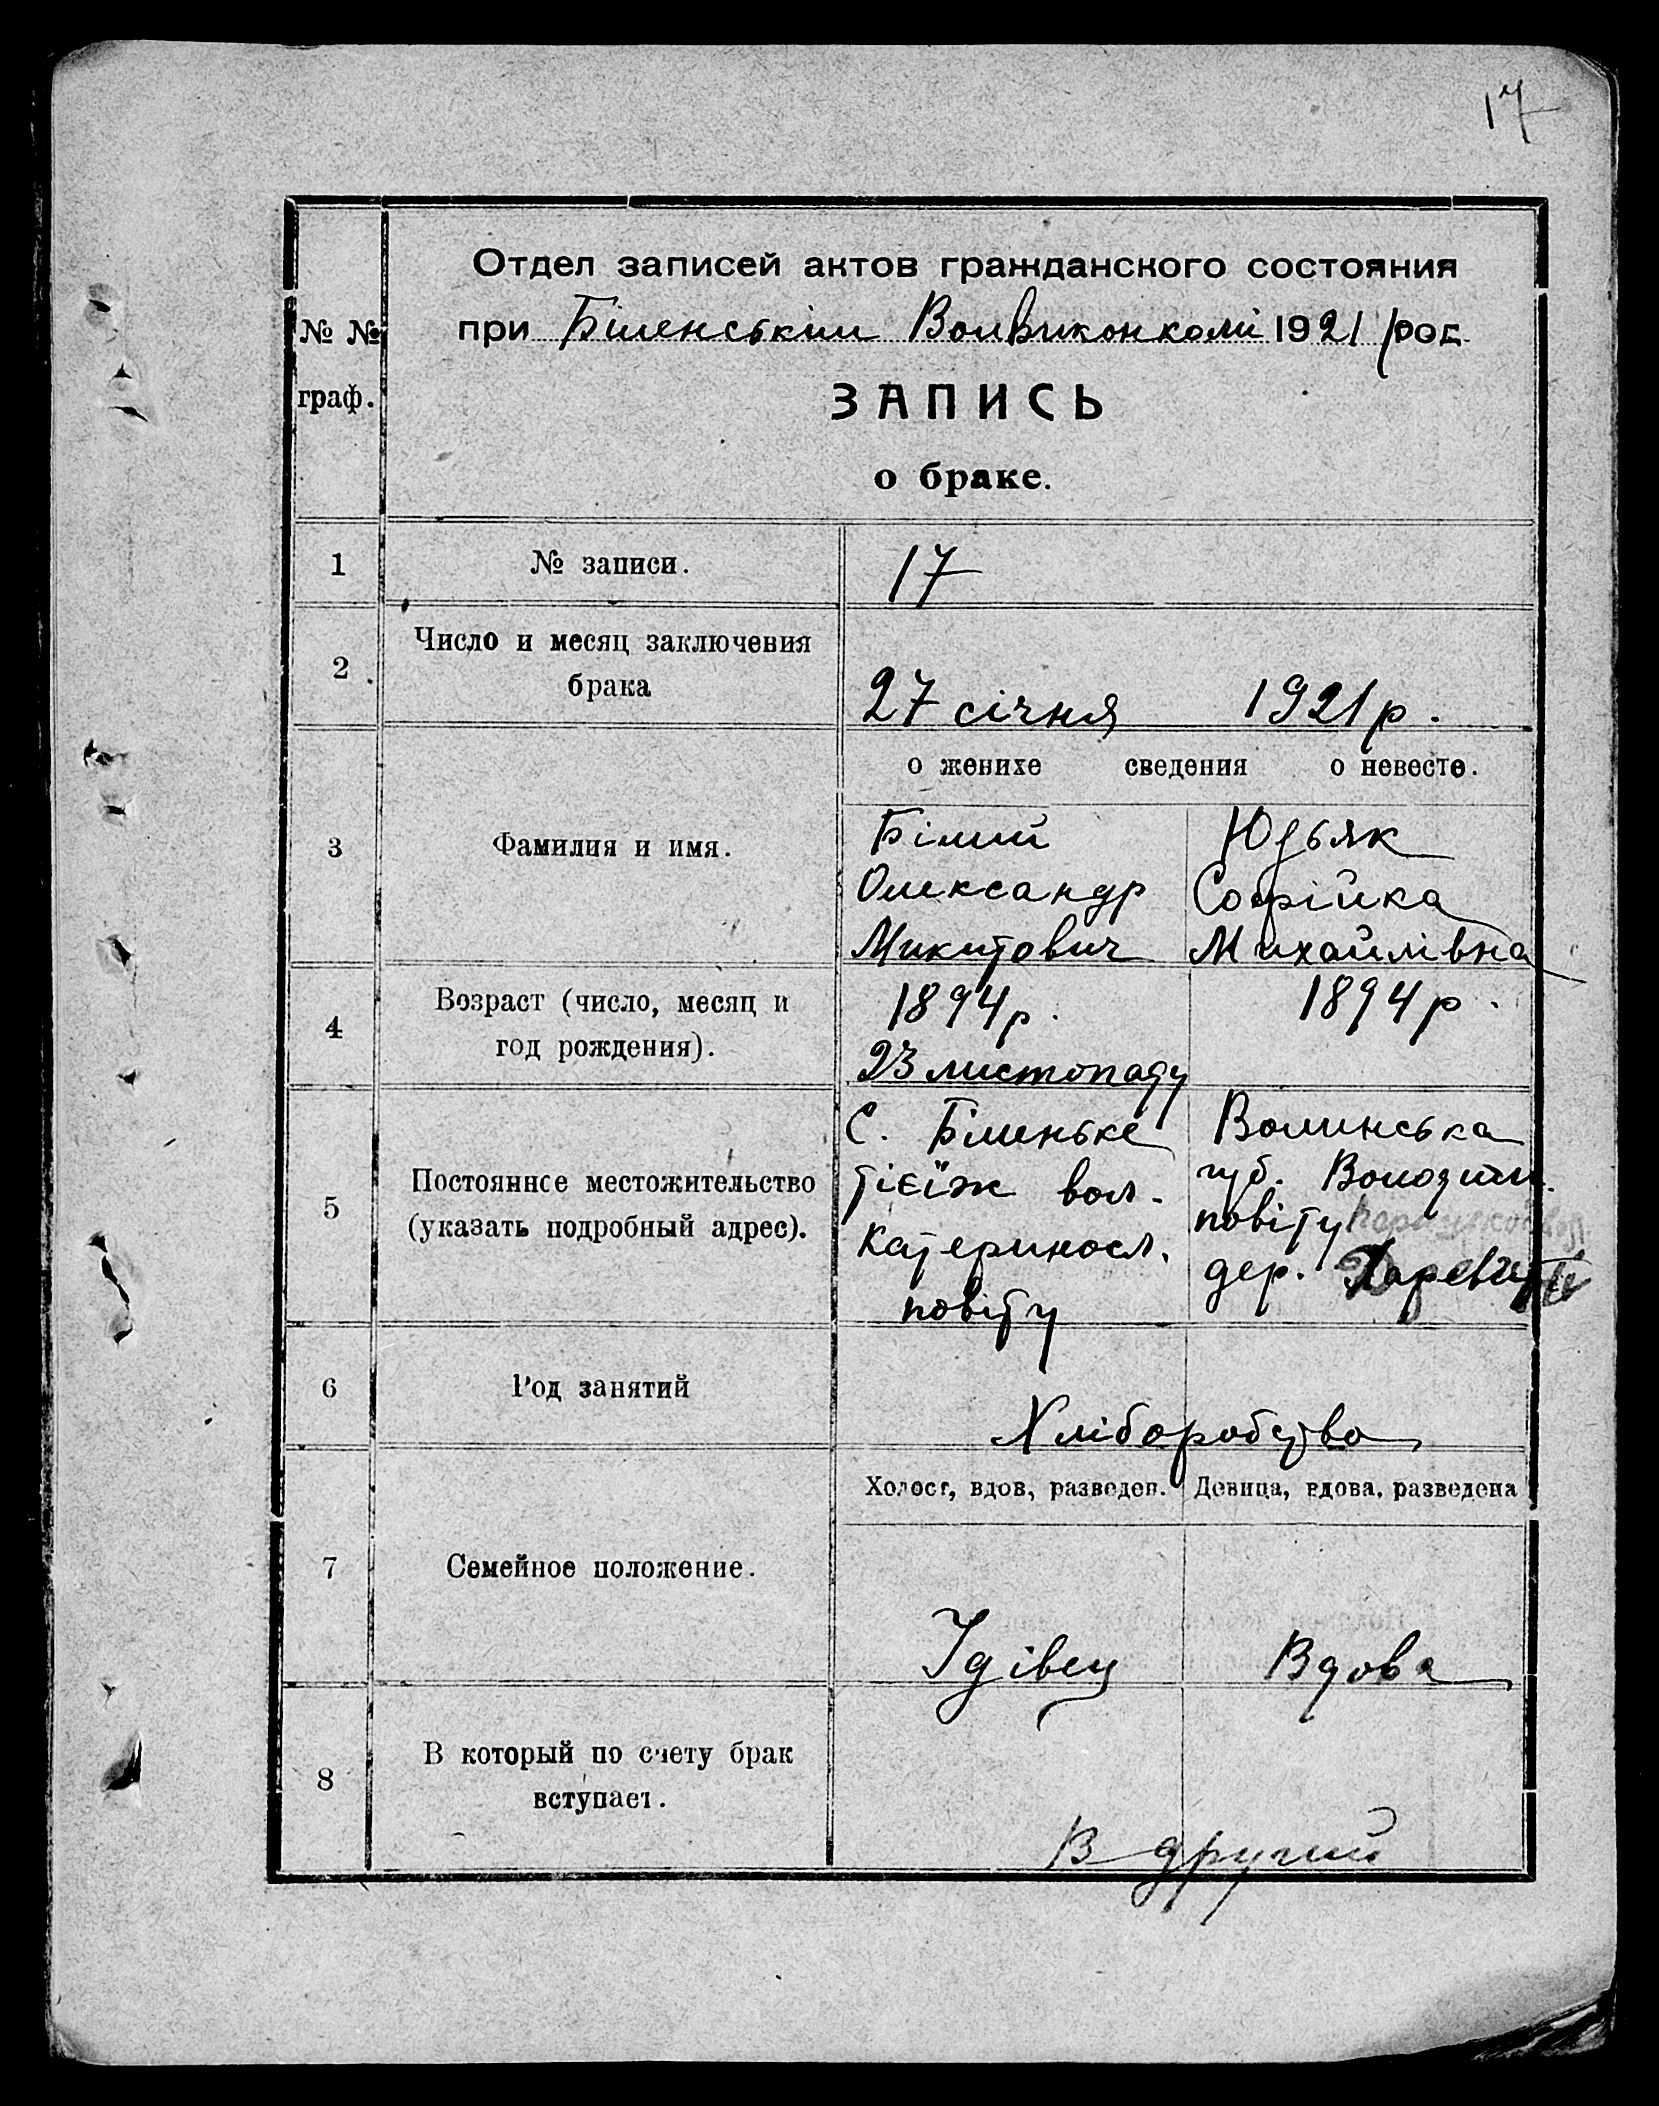 17
Отдел записей актов гражданского состояния
при Біленськім Волвиконкомі 1921 рос.
№ №
граф.
ЗАПИСЬ
о браке.
1 № записи. 17
2 Число и месяц заключения
брака
27 січня 1921 р.
о женихе сведения о невесте.
3 Фамилия и имя.
Білий Юдьяк
Олександр Софійка
Микитович Михайлівна
4 Возраст (число, месяц и
год рождения).
1894 р. 1894 р.
23 листопаду
5 Постоянное местожительство
(указать подробный адрес).
С. Біленьке Волинська
тієїж вол. губ. Володим.
Катериносл. повіту
повіту дер.
6 Род занятий
Хліборобство
Холост, вдов, разведен. Девица, вдова, разведена
7 Семейное положение.
Удівец Вдова
8 В который по счету брак
вступает.
В другий